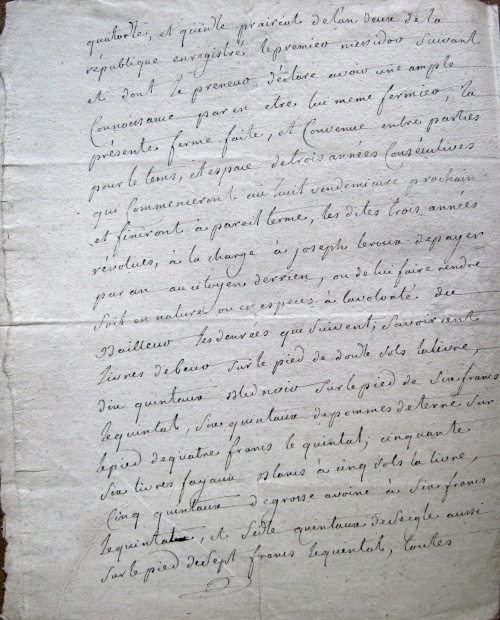 quatorze, et quinze prairéal de l'an deux de la
république enregistré le premier meridor suivant
et dont le preneur déclare avoir une ample
Connoissance par en etre lui meme fermier, la
présente ferme faite, et Convenue entre parties
pour le tems, et espace de trois années Consécutives
qui Commenceront au huit vendemiaire prochain
et finiront à pareil terme, les dites trois années
révolues, à la charge à joseph leroux de payer
par an au citoyen derrien, ou de lui faire rendre
soit en nature ou en especes à la volonté du
Bailleur les denrées qui suivent; savoir cent
livres de beur sur le pied de douze sols la livre,
dix quintaux bled noir sur le pied de six francs
le quintal, six quintaux de pommes de terre sur
le pied de quatre francs le quintal; cinquante
six livres fayaux blancs à cinq sols la livre,
Cinq quintaux de grosse avoine à six francs
le quintal, et seize quintaux de seigle aussi
sur le pied de sept francs le quental, toutes